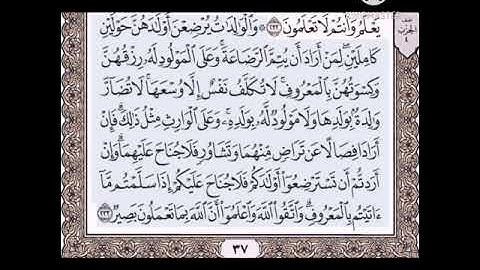 يَعْلَمُ وَأَنتُمْ لَا تَعْلَمُونَ ٢٣٢ ۞ وَالْوَالِدَاتُ يُرْضِعْنَ أَوْلَادَهُنَّ حَوْلَيْنِ
كَامِلَيْنِ لِمَنْ أَرَادَ أَن يُتِمَّ الرَّضَاعَةَ وَعَلَى الْمَوْلُودِ لَهُ رِزْقُهُنَّ
وَكِسْوَتُهُنَّ بِالْمَعْرُوفِ لَا تُكَلَّفُ نَفْسٌ إِلَّا وُسْعَهَا لَا تُضَارَّ
وَالِدَةٌ بِوَلَدِهَا وَلَا مَوْلُودٌ لَّهُ بِوَلَدِهِ وَعَلَى الْوَارِثِ مِثْلُ ذَٰلِكَ فَإِنْ
أَرَادَا فِصَالًا عَن تَرَاضٍ مِّنْهُمَا وَتَشَاوُرٍ فَلَا جُنَاحَ عَلَيْهِمَا وَإِنْ
أَرَدتُّمْ أَن تَسْتَرْضِعُوا أَوْلَادَكُمْ فَلَا جُنَاحَ عَلَيْكُمْ إِذَا سَلَّمْتُم مَّا
آتَيْتُم بِالْمَعْرُوفِ وَاتَّقُوا اللَّهَ وَاعْلَمُوا أَنَّ اللَّهَ بِمَا تَعْمَلُونَ بَصِيرٌ ٢٣٣
٣٧